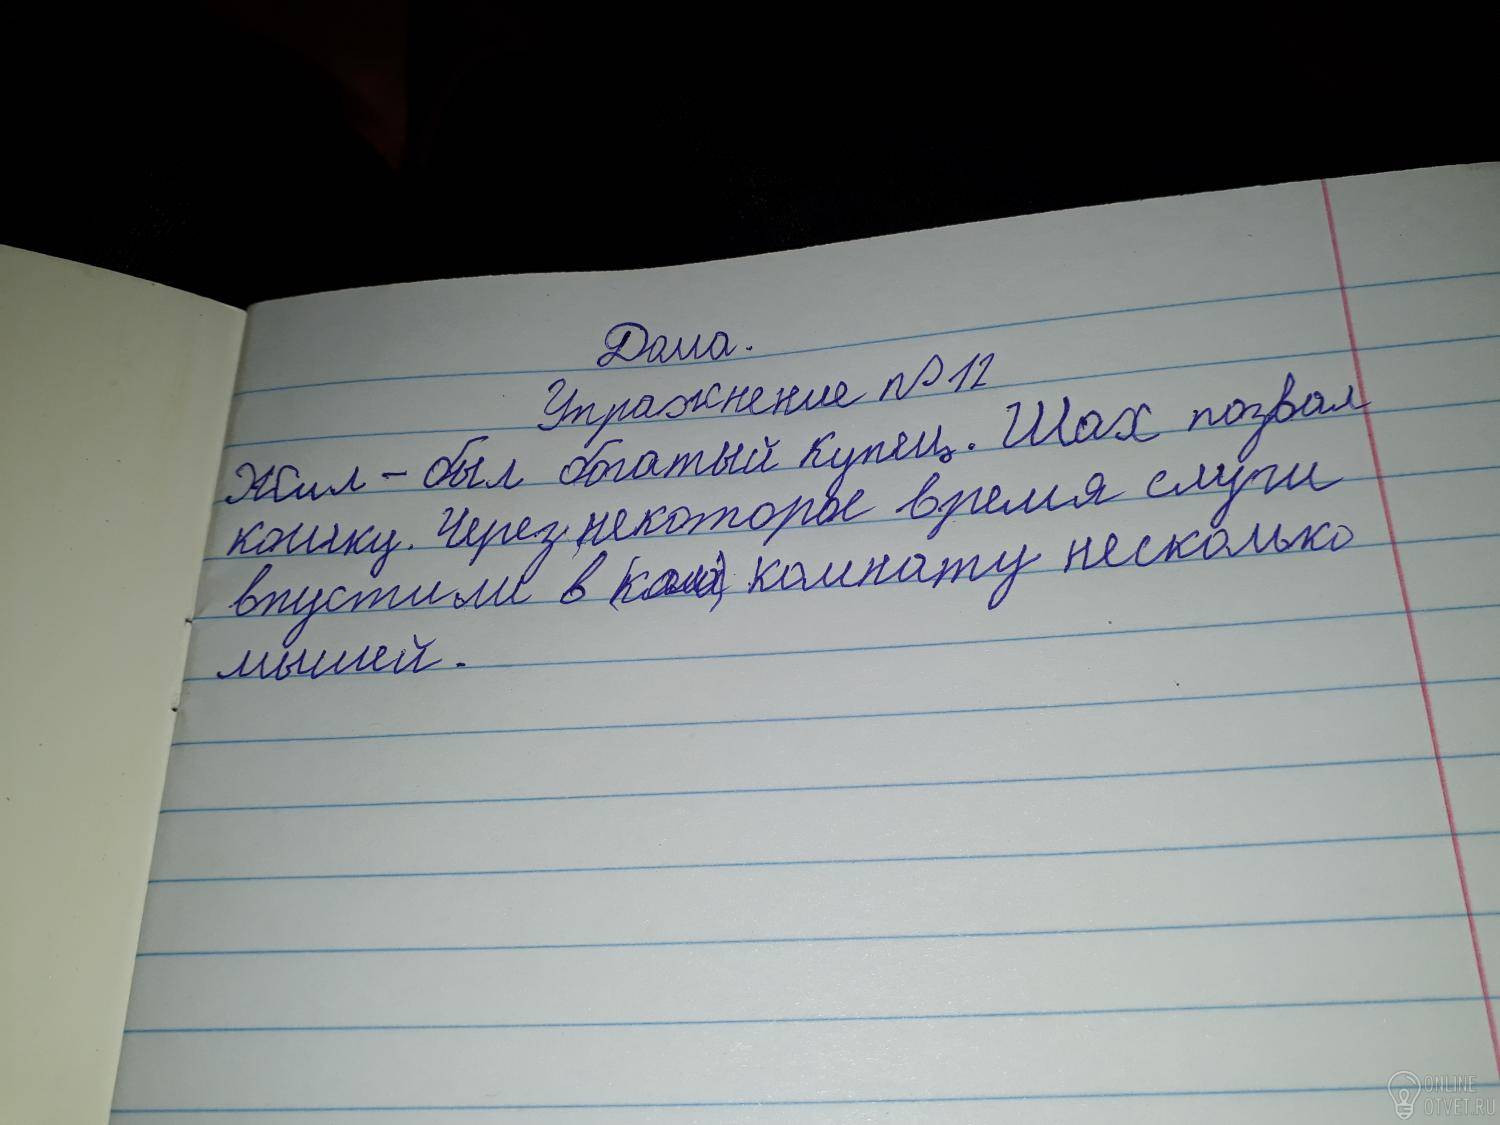 Дома.
Упражнение №12
Жил-был богатый купец. Шах позвал
кошку. Через некоторое время слуги
впустили в комнату несколько
мышей.
ONLINE
OTVET.RU